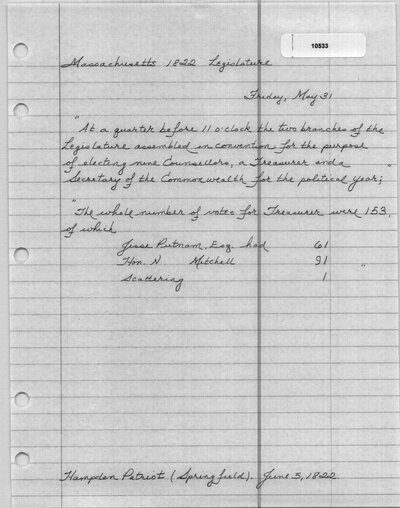 10533
Massachusetts 1822 Legislature
Friday, May 31
"At a quarter before 11 o'clock the two branches of the
Legislature assembled in convention for the purpose
of electing nine Counsellors, a Treasurer and a
Secretary of the Commonwealth for the political year; "
"The whole number of votes for Treasurer were 153,
of which
Jesse Putnam, Esq. had 61
Hon. N Mitchell 91 "
Scattering 1
Hampden Patriot (Springfield). June 5, 1822.